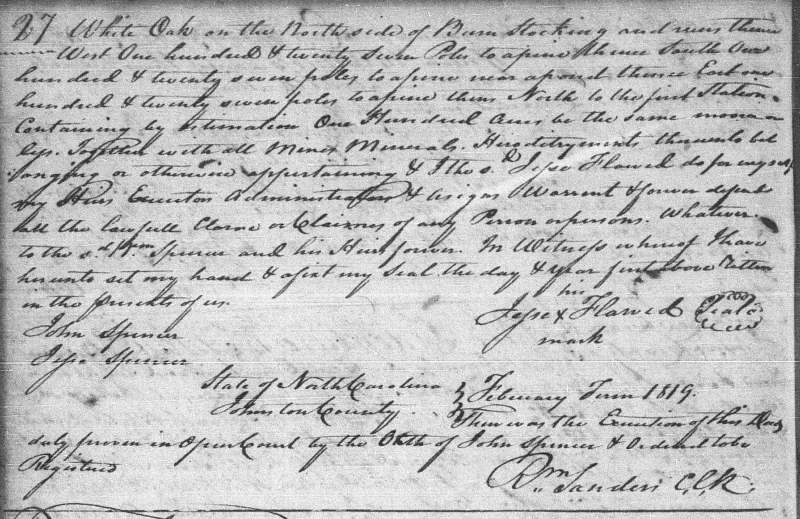 27 White Oak on the North side of Burn Stocking and runs thence
West One hundred & twenty Seven Poles to a pine thence South One
hundred & twenty seven poles to a pine near a pond thence East one
hundred & twenty seven poles to a pine thens North to the first Station
Containing by estimation One Hundred Acres be the same more or
less. Together with all Mines Minerals. Heroditryments thereunto bel
onging or otherwise appertaining & I the sd. Jesse Flawed do for my self
my Heirs Executors Administrators & Assigns Warrent & forever defend
all the lawfull Clame or Claimes of any Person or persons. Whatever
to the sd. Wm. Spencer and his Heirs forever. In Witness whereof I have
hereunto set my hand & afixt my Seal the day & year first above ritten
in the presents of us.
his
John Spencer Jesse x Flawed Seal
mark
Jesse Spencer
State of North Carolina } February Term 1819.
Johnston County. } Then was the Execution of this Deed
duly proven in Open Court by the Oath of John Spencer & Ordered to be
Registered
Rm. Sanders C,C,k.